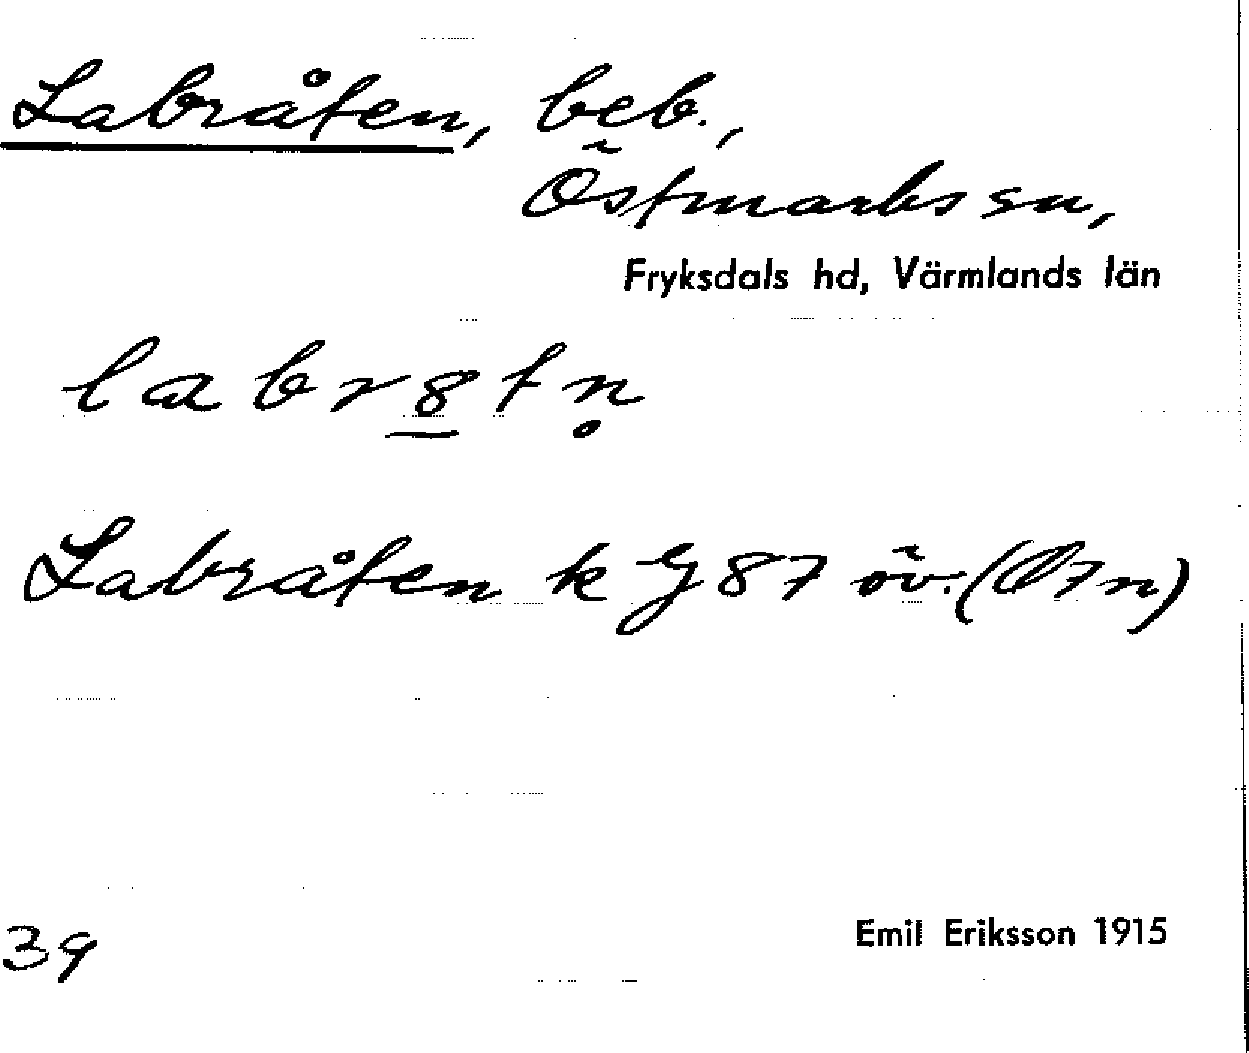 Labråten, beb.,
Östmarks sn,
Fryksdals hd, Värmlands län
labr8tn̥
Labråten k G 87 öv. (Ö7n)
39
Emil Eriksson 1915